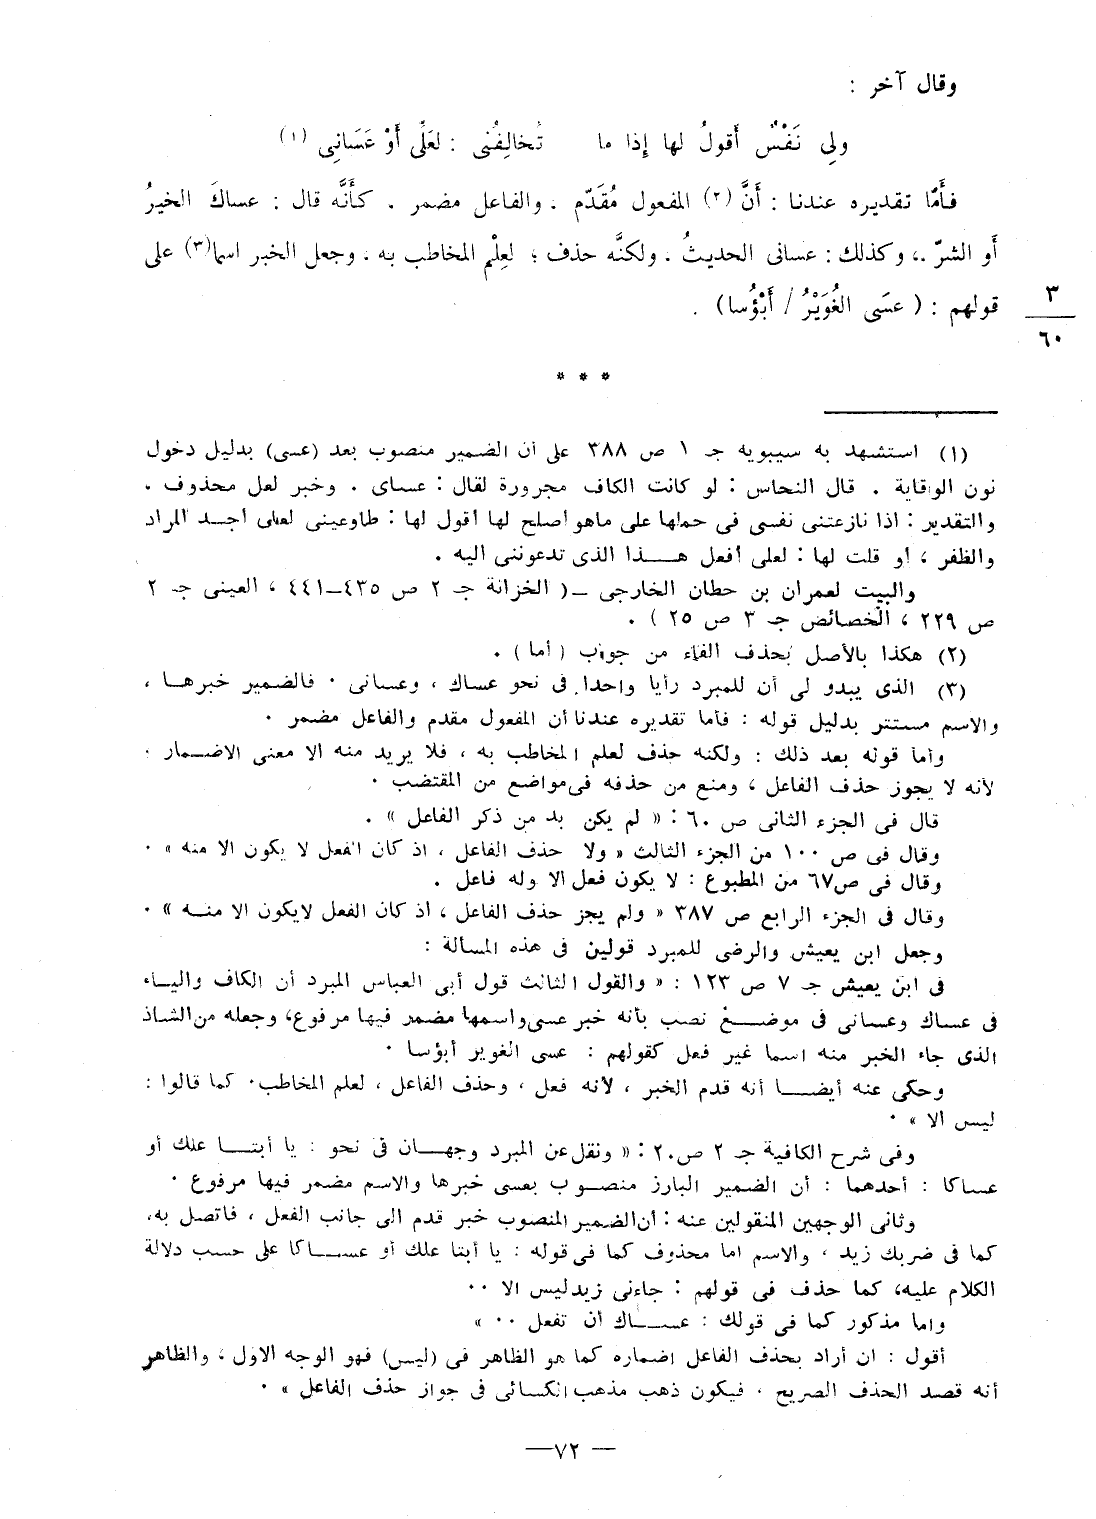 وقال آخر :
ولِي نَفْسٌ أَقولُ لها إِذا ما تُخالِفُنى : لعَلِّى أَوْ عَسَانِى (١)
فأَمَّا تقديره عندنا : أَنَّ (٢) المفعول مُقَدّم . والفاعل مضمر . كأَنَّه قال : عساكَ الخيرُ
أَو الشرّ .، وكذلك : عسانى الحديثُ . ولكنَّه حذف ؛ لعِلْم المخاطب به . وجعل الخبر اسما(٣) على
قولهم : ( عسَى الغُوَيْرُ / أَبْؤُسا) .
٣
٦٠
* * *
(١) استشهد به سيبويه جـ ١ ص ٣٨٨ على أن الضمير منصوب بعد (عسى) بدليل دخول
نون الوقاية . قال النحاس : لو كانت الكاف مجرورة لقال : عساى . وخبر لعل محذوف .
والتقدير : اذا نازعتنى نفسى فى حملها على ماهو أصلح لها أقول لها : طاوعينى لعلى أجـد المراد
والظفر ، أو قلت لها : لعلى أفعل هـــذا الذى تدعوننى اليه .
والبيت لعمران بن حطان الخارجى ـ ( الخزانة جـ ٢ ص ٤٣٥ـ٤٤١ ، العينى جـ ٢
ص ٢٢٩ ، الخصائص جـ ٣ ص ٢٥ ) .
(٢) هكذا بالأصل بحذف الفاء من جواب ( أما ) .
(٣) الذى يبدو لى أن للمبرد رأيا واحدا. فى نحو عساك ، وعسانى . فالضمير خبرهـا ،
والاسم مستتر بدليل قوله : فأما تقديره عندنا أن المفعول مقدم والفاعل مضمر .
وأما قوله بعد ذلك : ولكنه حذف لعلم المخاطب به ، فلا يريد منه الا معنى الاضـمار .
لأنه لا يجوز حذف الفاعل ، ومنع من حذفه فى مواضع من المقتضب .
قال فى الجزء الثانى ص ٦٠ : « لم يكن بد من ذكر الفاعل » .
وقال فى ص ١٠٠ من الجزء الثالث « ولا حذف الفاعل ، اذ كان الفعل لا يكون الا منه » .
وقال فى ص٦٧ من المطبوع : لا يكون فعل الا وله فاعل .
وقال فى الجزء الرابع ص ٣٨٧ « ولم يجز حذف الفاعل ، اذ كان الفعل لايكون الا منـه » .
وجعل ابن يعيش والرضى للمبرد قولين فى هذه المسألة :
فى ابن يعيش جـ ٧ ص ١٢٣ : « والقول الثالث قول أبى العباس المبرد أن الكاف واليـاء
فى عساك وعسانى فى موضـــع نصب بأنه خبر عسى واسمها مضمر فيها مرفوع، وجعله من الشاذ
الذى جاء الخبر منه اسما غير فعل كقولهم : عسى الغوير أبؤسا .
وحكى عنه أيضـــا أنه قدم الخبر ، لأنه فعل ، وحذف الفاعل ، لعلم المخاطب. كما قالوا :
ليس الا » .
وفى شرح الكافية جـ ٢ ص٢٠ : « ونقل عن المبرد وجهـــان فى نحو : يا أبتـــا علك أو
عساكا : أحدهما : أن الضمير البارز منصـــوب بعسى خبرها والاسم مضمر فيها مرفوع .
وثانى الوجهين المنقولين عنه : أن الضمير المنصوب خبر قدم الى جانب الفعل ، فاتصل به،
كما فى ضربك زيد ، والاسم اما محذوف كما فى قوله : يا أبتا علك أو عســـاكا على حسب دلالة
الكلام عليه، كما حذف فى قولهم : جاءنى زيد ليس الا ..
واما مذكور كما فى قولك : عســـاك أن تفعل .. »
أقول : ان أراد بحذف الفاعل اضماره كما هو الظاهر فى (ليس) فهو الوجه الاول ، والظاهر
أنه قصد الحذف الصريح . فيكون ذهب مذهب الكسائى فى جواز حذف الفاعل » .
— ٧٢—